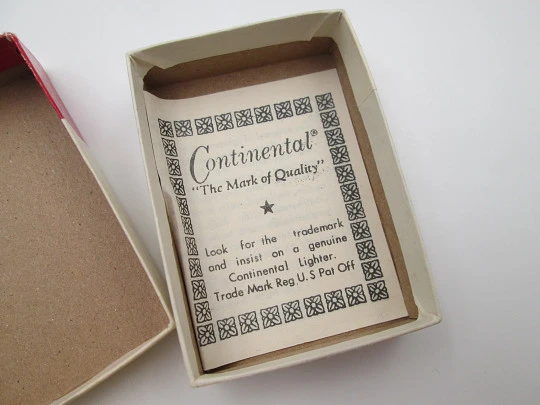 Continental®
"The Mark of Quality"
★
Look for the trademark
and insist on a genuine
Continental Lighter.
Trade Mark Reg U.S Pat Off